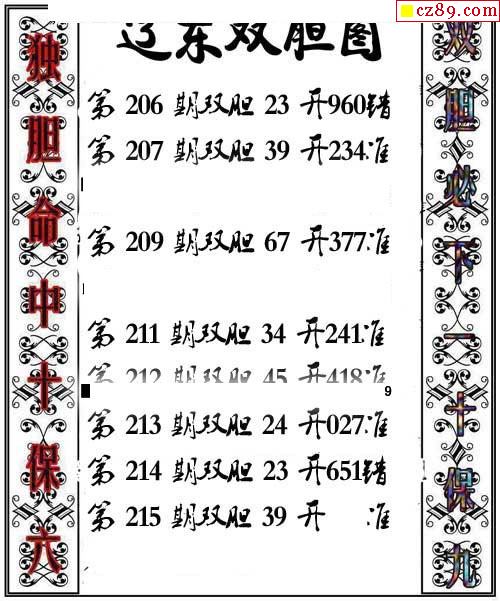 cz89.com
辽东双胆图
第 206 期双胆 23 开960错
第 207 期双胆 39 开234准
第 209 期双胆 67 开377准
第 211 期双胆 34 开241准
第 212 期双胆 45 开418准
9
第 213 期双胆 24 开027准
第 214 期双胆 23 开651错
第 215 期双胆 39 开 准
独胆命中十保六
双胆必下一十保九